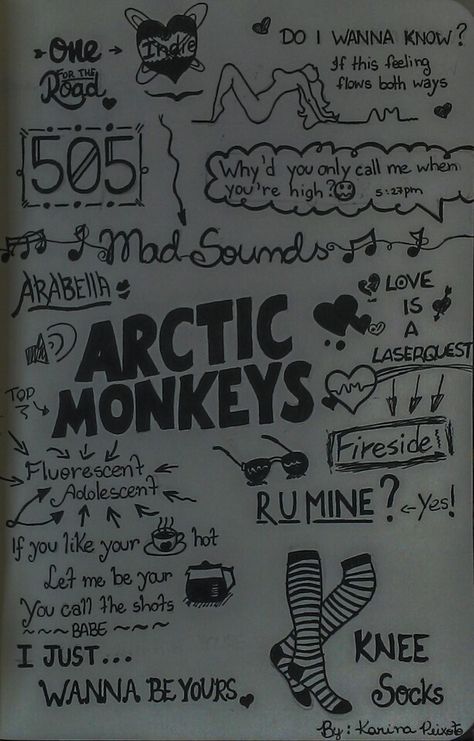 One
FOR THE
Road
Indie
DO I WANNA KNOW?
If this feeling
flows both ways
505
Why'd you only call me when
you're high?
5:27pm
Mad Sounds
ARABELLA
LOVE
IS
A
LASERQUEST
ARCTIC
MONKEYS
TOP
3
Fireside
Fluorescent
Adolescent
R U MINE?
Yes!
If you like your hot
Let me be your
You call the shots
~~~~ BABE ~~~~
I JUST...
WANNA BE YOURS
KNEE
Socks
By: Karina Peixoto